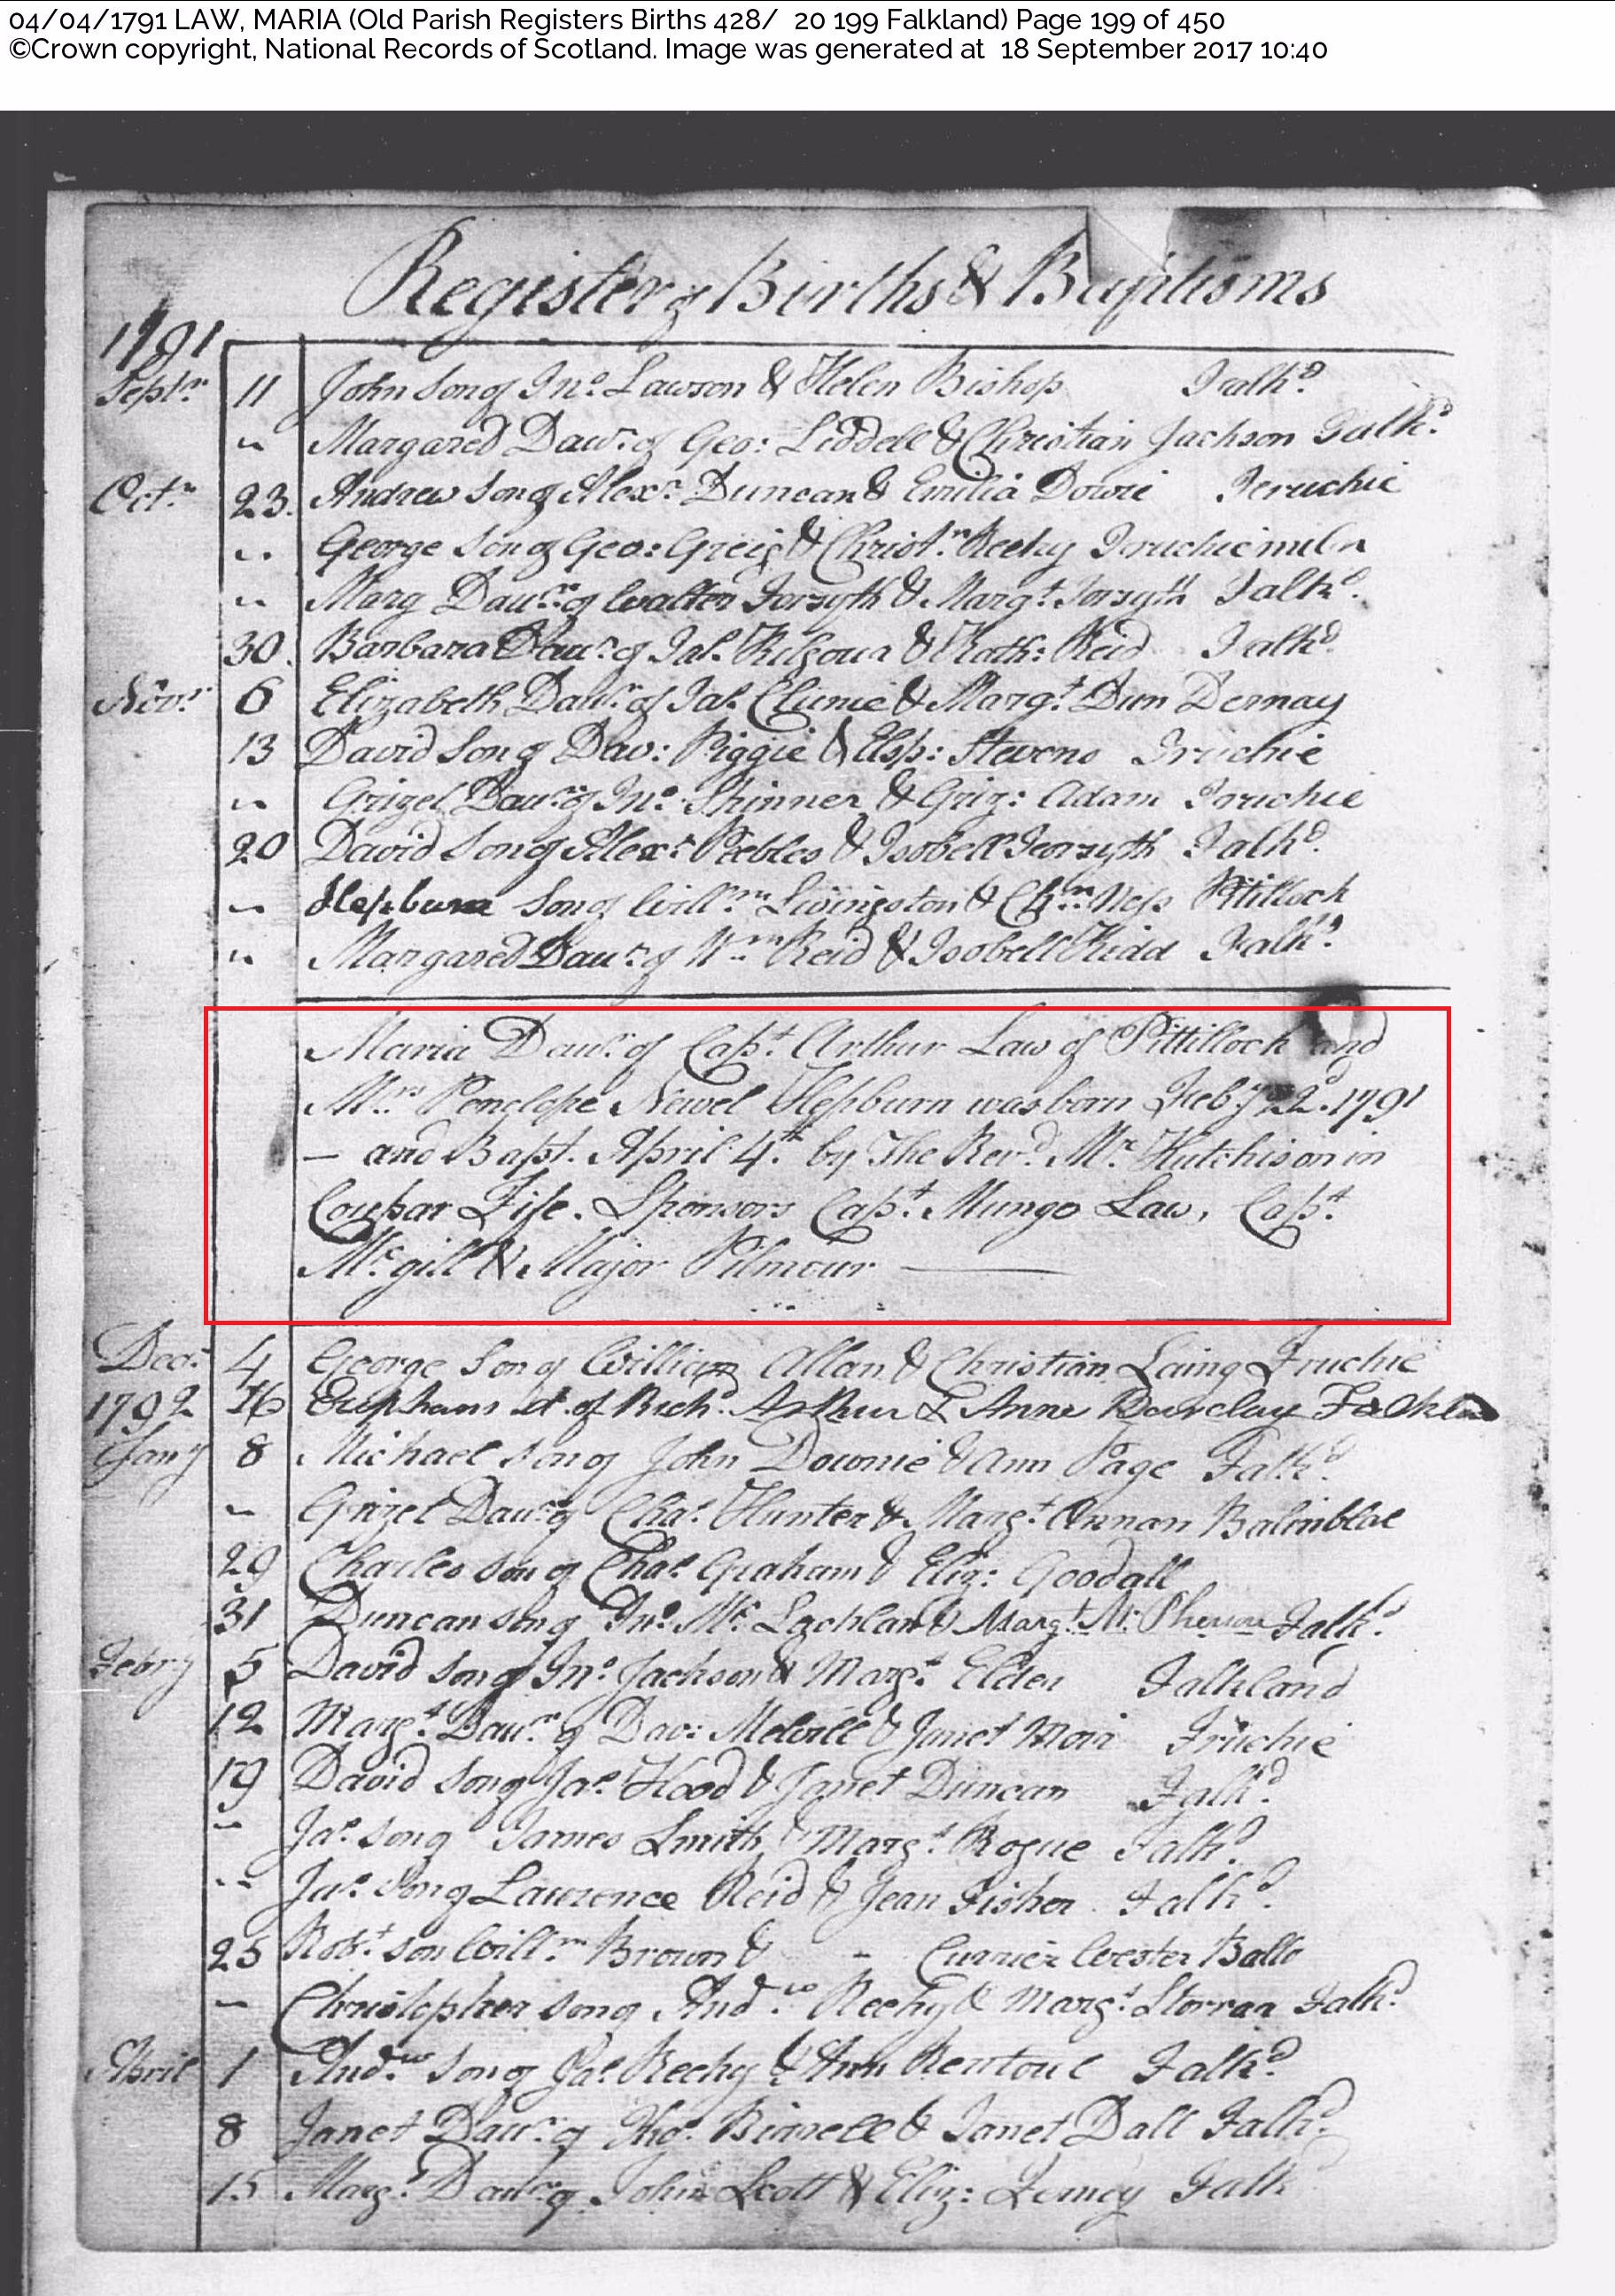 04/04/1791 LAW, MARIA (Old Parish Registers Births 428/ 20 199 Falkland) Page 199 of 450
©Crown copyright, National Records of Scotland. Image was generated at 18 September 2017 10:40
Register of Births & Baptisms
1791
Septr. 11 John Son of Jno. Lawson & Helen Bishop Falkd.
" Margared Dawr. of Geo: Liddell & Christian Jackson Falkd.
Octr. 23. Andrew Son of Alexr. Duncan & Emilia Dowie Fruchie
" George Son of Geo: Greig & Christn. Reeky Fruchie miln
" Marg Daur. of Walter Forsyth & Margt. Forsyth Falkd.
30. Barbara Daur. of Jas. Kilgour & Kath: Reid Falkd.
Novr. 6 Elizabeth Daur. of Jas. Clunie & Margt. Dun Dernay
13 David Son of Dav: Piggie & Elsp: Stevens Fruchie
" Grizel Daur. of Jno. Skinner & Griz: Adam Fruchie
20 David Son of Alexr. Peebles & Isobell Forsyth Falkd.
" Hepburn Son of Willm. Livingston & Chrn. Ness Pittilloch
" Margared Daur. of Wm. Reid & Isobell Kidd Falkd.
Maria Daur. of Capt. Arthur Law of Pittilloch and
Mrs. Penelope Newel Hepburn was born Feby 22d. 1791
— and Bapt. April 4th. by The Revd. Mr. Hutchison in
Coupar Fife. Sponsors Capt. Mungo Law, Capt.
Mcgill & Major Pilmour —
Decr. 4 George Son of William Allan & Christian Laing Fruchie
1792 16 Eupham d. of Richd. Arthur & Anne Barclay
Jany 8 Michael Son of John Downie & Ann Page Falkd.
" Grizel Daur. of Chas. Hunter & Margt. Annan Balinblae
29 Charles Son of Chas. Graham & Eliz: Goodall
31 Duncan Son of Jno. Mc.Lachlan & Margt. Mc.Pherson Falkd.
Febry 5 David Son of Jno. Jackson & Margt. Elder Falkland
12 Margt. Daur. of Dav: Melvill & Janet Moir Fruchie
19 David Son of Jas. Hood & Janet Duncan Falkd.
" Jas. Son of James Smith & Margt. Bogue Falkd.
" Jas. Son of Lawrence Reid & Jean Fisher Falkd.
25 Robt. son Willm. Brown & - Currier Wester Ballo
" Christopher Son of Andw. Reeky & Margt. Storrar Falkd.
April 1 Andw. Son of Jas. Reeky & Ann Rentoul Falkd.
8 Janet Daur. of Tho. Birrell & Janet Dall Falkd.
15 Margt. Daur. of John Scott & Eliz: Falk